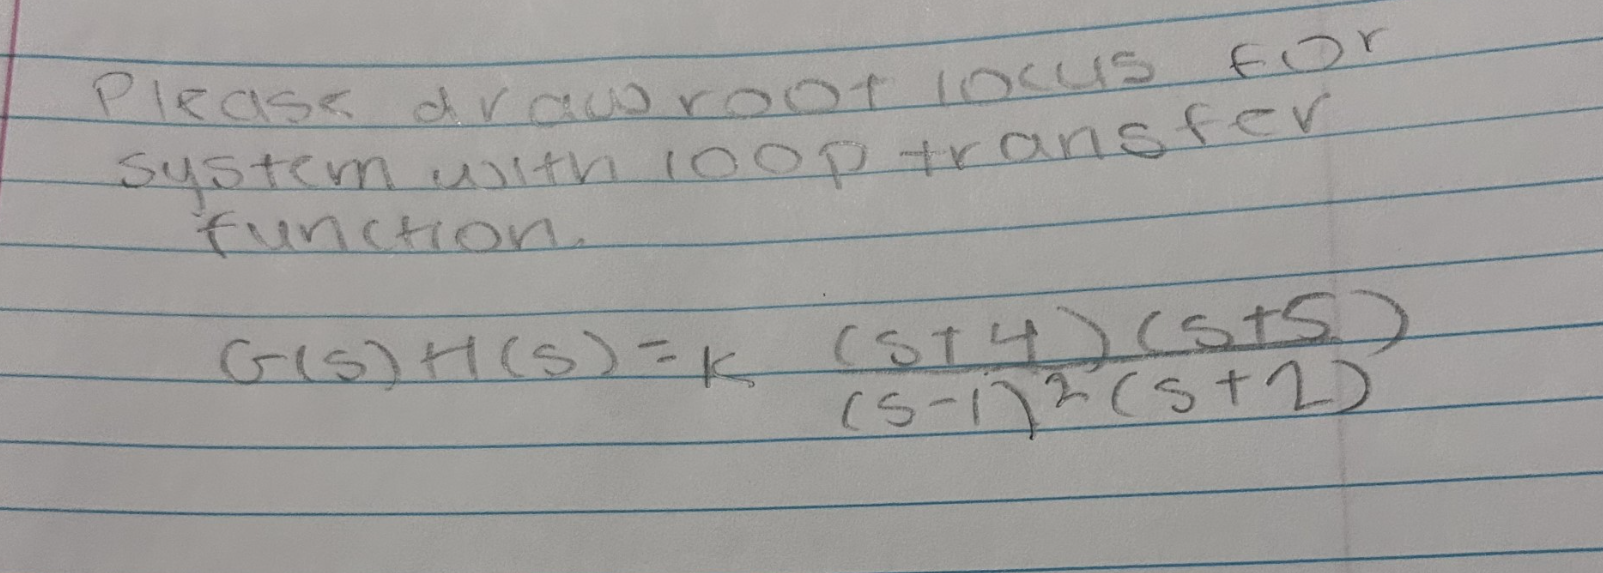 Please draw root locus for
system with loop transfer
function.
G(s)H(s) = K (s+4)(s+5)
(s-1)²(s+2)